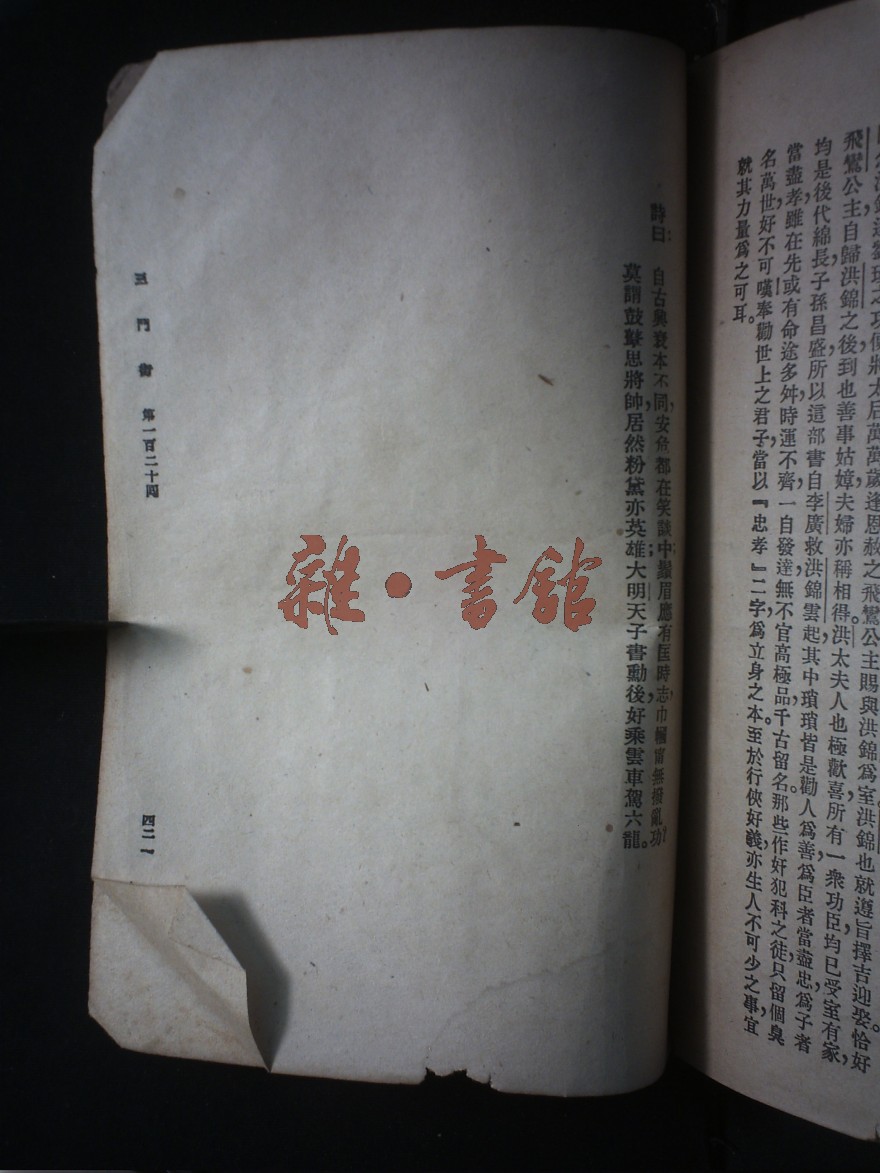 飛鸞公主自歸洪錦之後，到也善事姑嫜，夫婦亦稱相得。洪太夫人也極歡喜。所有一衆功臣均已受室有家，
均是後代綿長，子孫昌盛。所以這部書自李廣救洪錦雲起，其中瑣瑣皆是勸人爲善，爲臣者當盡忠，爲子者
當盡孝。雖在先或有命途多舛，時運不齊，一自發達，無不官高極品，千古留名。那些作奸犯科之徒，只留個臭
名萬世，好不可嘆。奉勸世上之君子，當以『忠孝』二字爲立身之本。至於行俠好義，亦生人不可少之事，宜
就其力量爲之可耳。
詩曰：自古興衰本不同，安危都在笑談中；鬚眉應有匡時志，巾幗豈無撥亂功？
莫謂鼓鼙思將帥，居然粉黛亦英雄；大明天子書勳後，好乘雲車駕六龍。
三門街　第一百二十四
四二一
雜・書館